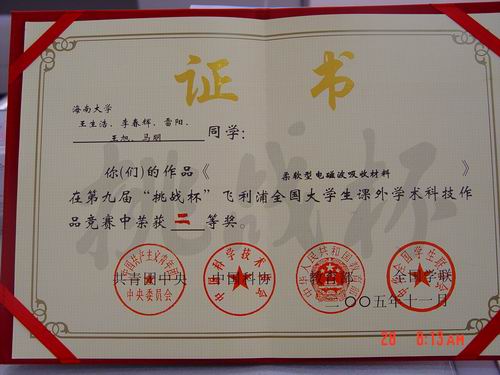 证书
海南大学
王生浩、李春辉、雷阳、
王旭、马明 同学：
你(们)的作品《 柔软型电磁波吸收材料 》
在第九届“挑战杯”飞利浦全国大学生课外学术科技作
品竞赛中荣获 二 等奖。
共青团中央 中国科协 教育部 全国学联
二〇〇五年十一月
挑战杯
中国共产主义青年团
中央委员会
中国科学技术协会
中华人民共和国教育部
28 8:13AM